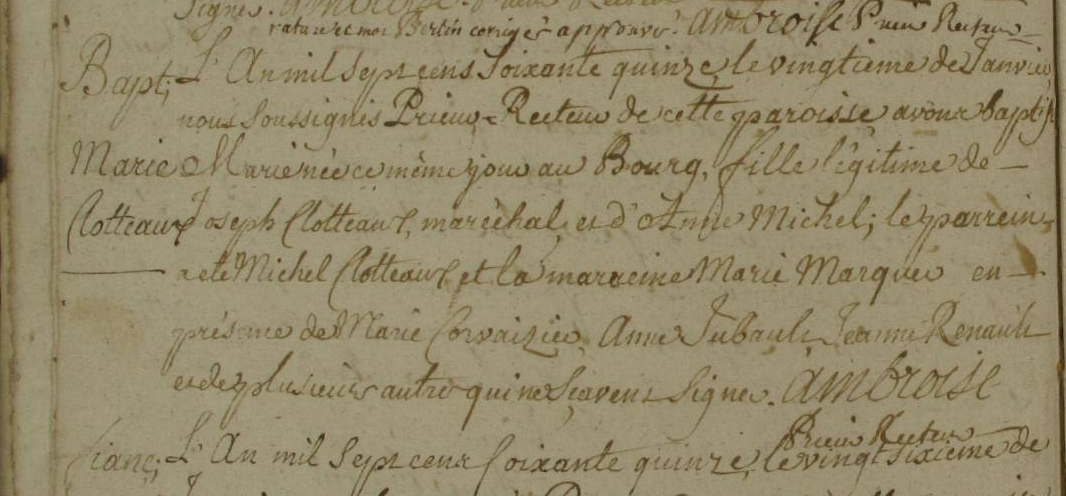 signer. ambroise Prieur Recteur
rature et moi Bertin corrigés approuvé. ambroise Prieur Recteur
Bapt; L'An mil Sept cens Soixante quinze, le vingtieme de Janvier,
nous Soussignés Prieur-Recteur de cette paroisse avons baptisé
Marie Marie née ce même jour au Bourg, fille légitime de
Clotteaux Joseph Clotteaux, maréchal, et d'Anne Michel; le parrein
a eté Michel Clotteaux et la maraeine Marie Marquer en
présence de Marie Corvaizier, Anne Jubault, Jeanne Renault
et de plusieurs autre qui ne Sçavent Signer. ambroise
Prieur Recteur
fianc; L'An mil Sept cens Soixante quinze, le vingt Sixieme de